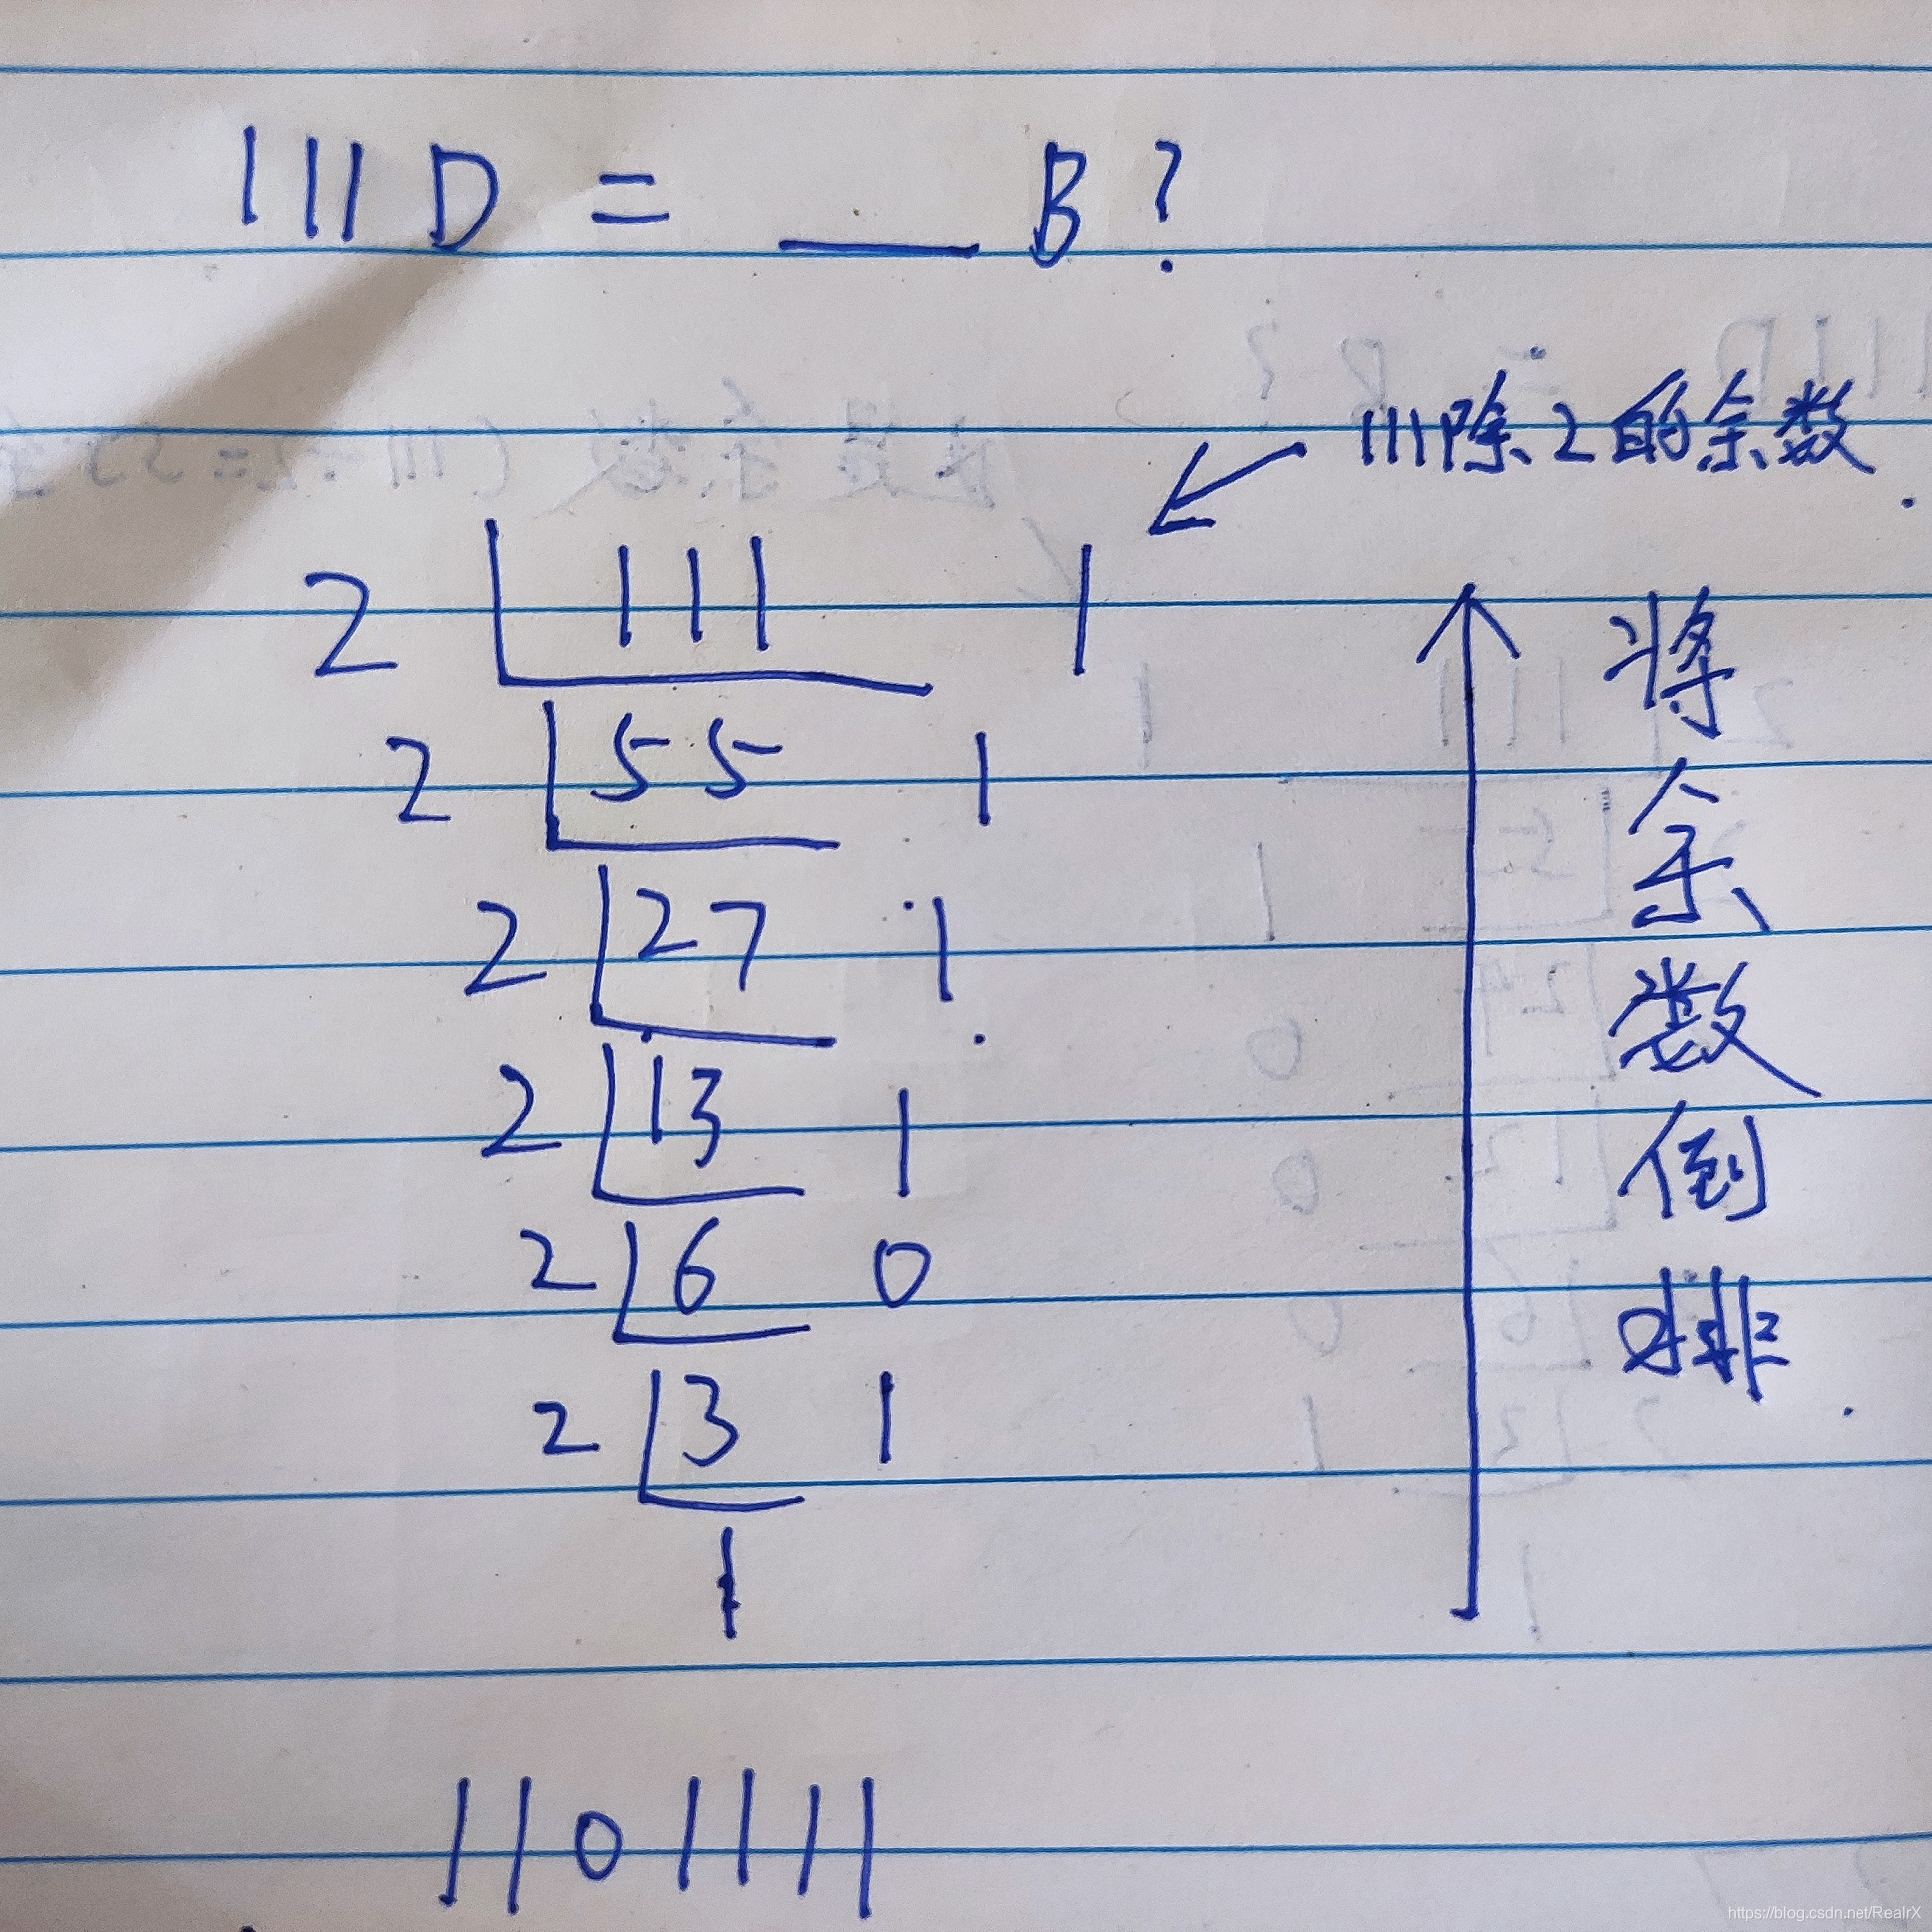 111D = ___ B?
111除2的余数.
2 111 1
2 55 1
2 27 1
2 13 1
2 6 0
2 3 1
1
将余数倒排.
1101111
https://blog.csdn.net/RealrX